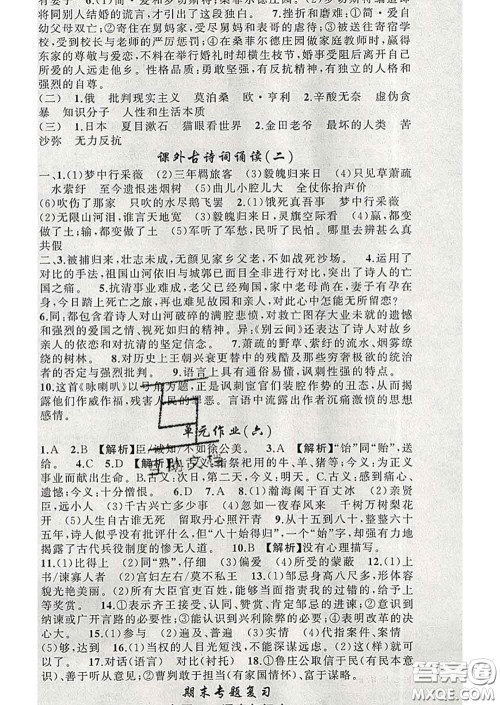 将同别人结婚的谎言,才引出了这段独白。 7.挫折和磨难:①简·爱自
幼父母双亡;②寄居在舅妈家,受尽舅妈和表哥的虐待;③被送往寄宿
学校,受到校长与老师的严厉惩罚;④桑菲尔德庄园做家庭教师时,赢得
东家的尊敬与热爱,不料在举行婚礼时却横生枝节,婚事受阻,她离开自己
所爱的人远走他乡。性格品质:自尊自爱,有反抗精神,有独立的人格和
强烈的自尊。
(二) 1.俄 批判现实主义 莫泊桑 欧·亨利 2.辛酸无奈 虚伪贪
暴 知识分子 人性和生活本质
(三) 1.日本 夏目漱石 猫眼看世界 2.金田老爷 最坏的人类 苦
沙弥 无力反抗
课外古诗词诵读(二)
一、1.(1)梦中行采薇 (2)三年羁旅客 (3)毅魄归来日 (4)只见草萧疏
水萦纡 至今遗恨迷烟树 (5)曲儿小腔儿大 全仗你抬声价
(6)吹伤了那家 只吹的水尽鹅飞罢 2.(1)饿死真吾事 梦中行采薇
(2)无限山河泪,谁言天地宽 (3)毅魄归来日,灵旗空际看 (4)赢,都变
做了土;输,都变做了土 (5)军听了军愁,民听了民怕。哪里去辨甚么真
共假
二、3.被捕归来,壮志未成,无颜见家乡父老,不如战死沙场。 4.运用了
对比的手法,祖国山河依旧与城郭已面目全非对比,突出了诗人内心的亡
国之痛。 5.抗清事业难成,老父已经殉国,家中老母尚在,妻子无依,故园
难忘,想到今踏上死亡之旅,再也见不到故园和亲人,对此怎能无所留恋?
6.同:都包含着诗人对山河破碎的满腔悲愤,对救亡图存大业未就的遗憾
和强烈的爱国之情、视死如归的气概。异:《别云间》还表达了诗人对故乡
亲人的依恋的和对抗清的坚定信念。 7.萧疏的野草、萦纡的流水、烟雾缭
绕的树林。 8.对历史上王朝兴衰更替中的残酷及那些穷奢极欲的统治
者的否定与强烈批判。 9.语言上具有通俗易懂、讽刺性强的特点。
10.这首《咏喇叭》以 为题,正是讽刺宦官们装腔作势的丑态,揭露
他们作威作福,残害人民的罪恶。言语中流露出作者沉痛激愤的思想
感情。
单元作业(六)
1.A 2.B 【解析】臣诚知不如徐公美。 3.A 【解析】“饴”同“贻”,送
给。 4.C 5.D 【解析】A.古义:指祭祀用的牛、羊、猪等;今义:为正义
事业而献出生命。B.古义:次日,第二天,今义:明天。C.古义:感到痛心、
遗憾;今义:十分憎恨。 6.D 7.C 8.(1)瀚海阑干百丈冰 (2)亲贤
臣,远小人 (3)千古兴亡多少事 (4)忽如一夜春风来 千树万树梨花
开 (5)人生自古谁无死 留取丹心照汗青 9.从十五到八十,整整六十
五年,诗人似乎没有批评什么,但“八十始得归”,一个“始”字,客观而有力地
揭露了古代兵役制度的惨无人道。 10.B 【解析】没有心理描写。
11.(1)比得上 (2)同“熟”,仔细 (3)偏爱 (4)所受的蒙蔽 12.(1)皇
上/谏寡人者 (2)宫妇左右/莫不私王 13.(1)邹忌身高八尺多,身材容
貌光艳美丽。 (2)所有大臣官吏百姓,能够当面指责我的过错的,给予上
等奖赏。 14.①表示齐王接受、同意、认可、赞赏、肯定邹忌的进谏;②意识到
纳谏或广开言路的必要性;③意识到除弊兴利的必要性;④有实施改革的
决心大。 15.(1)参与 (2)遍及、普遍 (3)实情 (4)案件
16.(1)比喻 (2)当权的人目光短浅,不能深谋远虑。 (3)大大小小的
案件 17.对话(语言) 对比(衬托) 18.①鲁庄公取信于民(有民本意
识),善于接受意见;②曹刿敢于进谏(有家国情怀),富于谋略。
期末专题复习